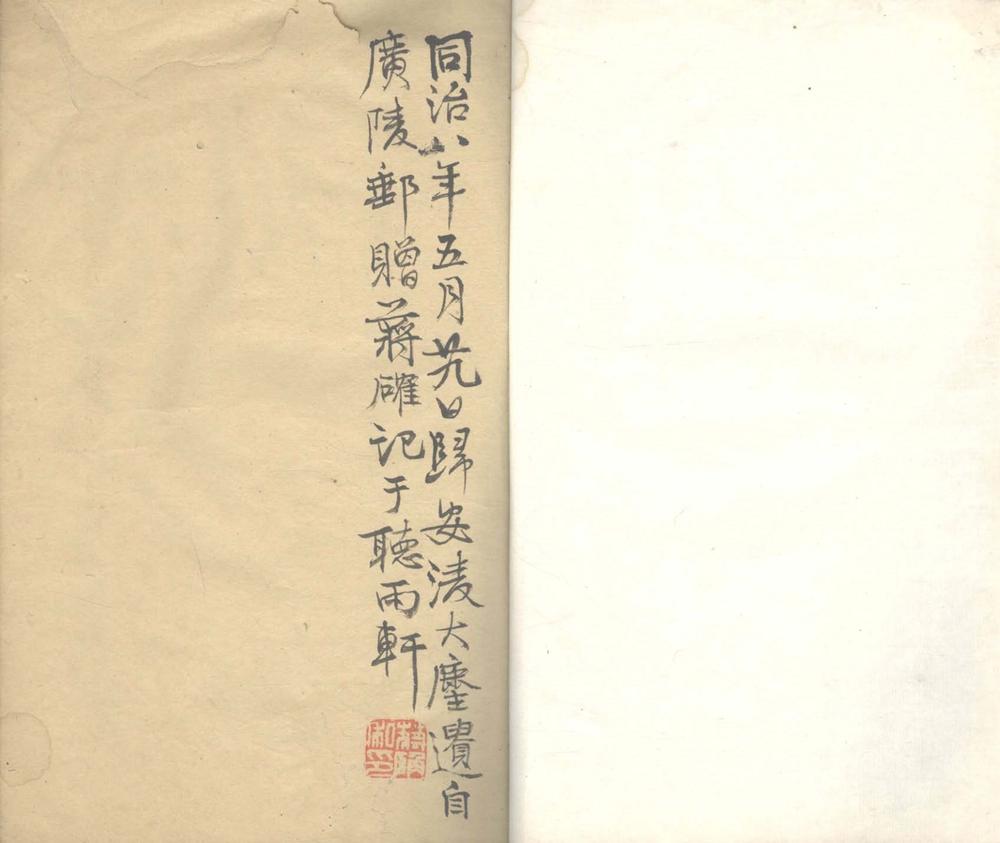 同治八年五月廿九日歸安淩大塵遺自
廣陵郵贈蔣確記于聽雨軒